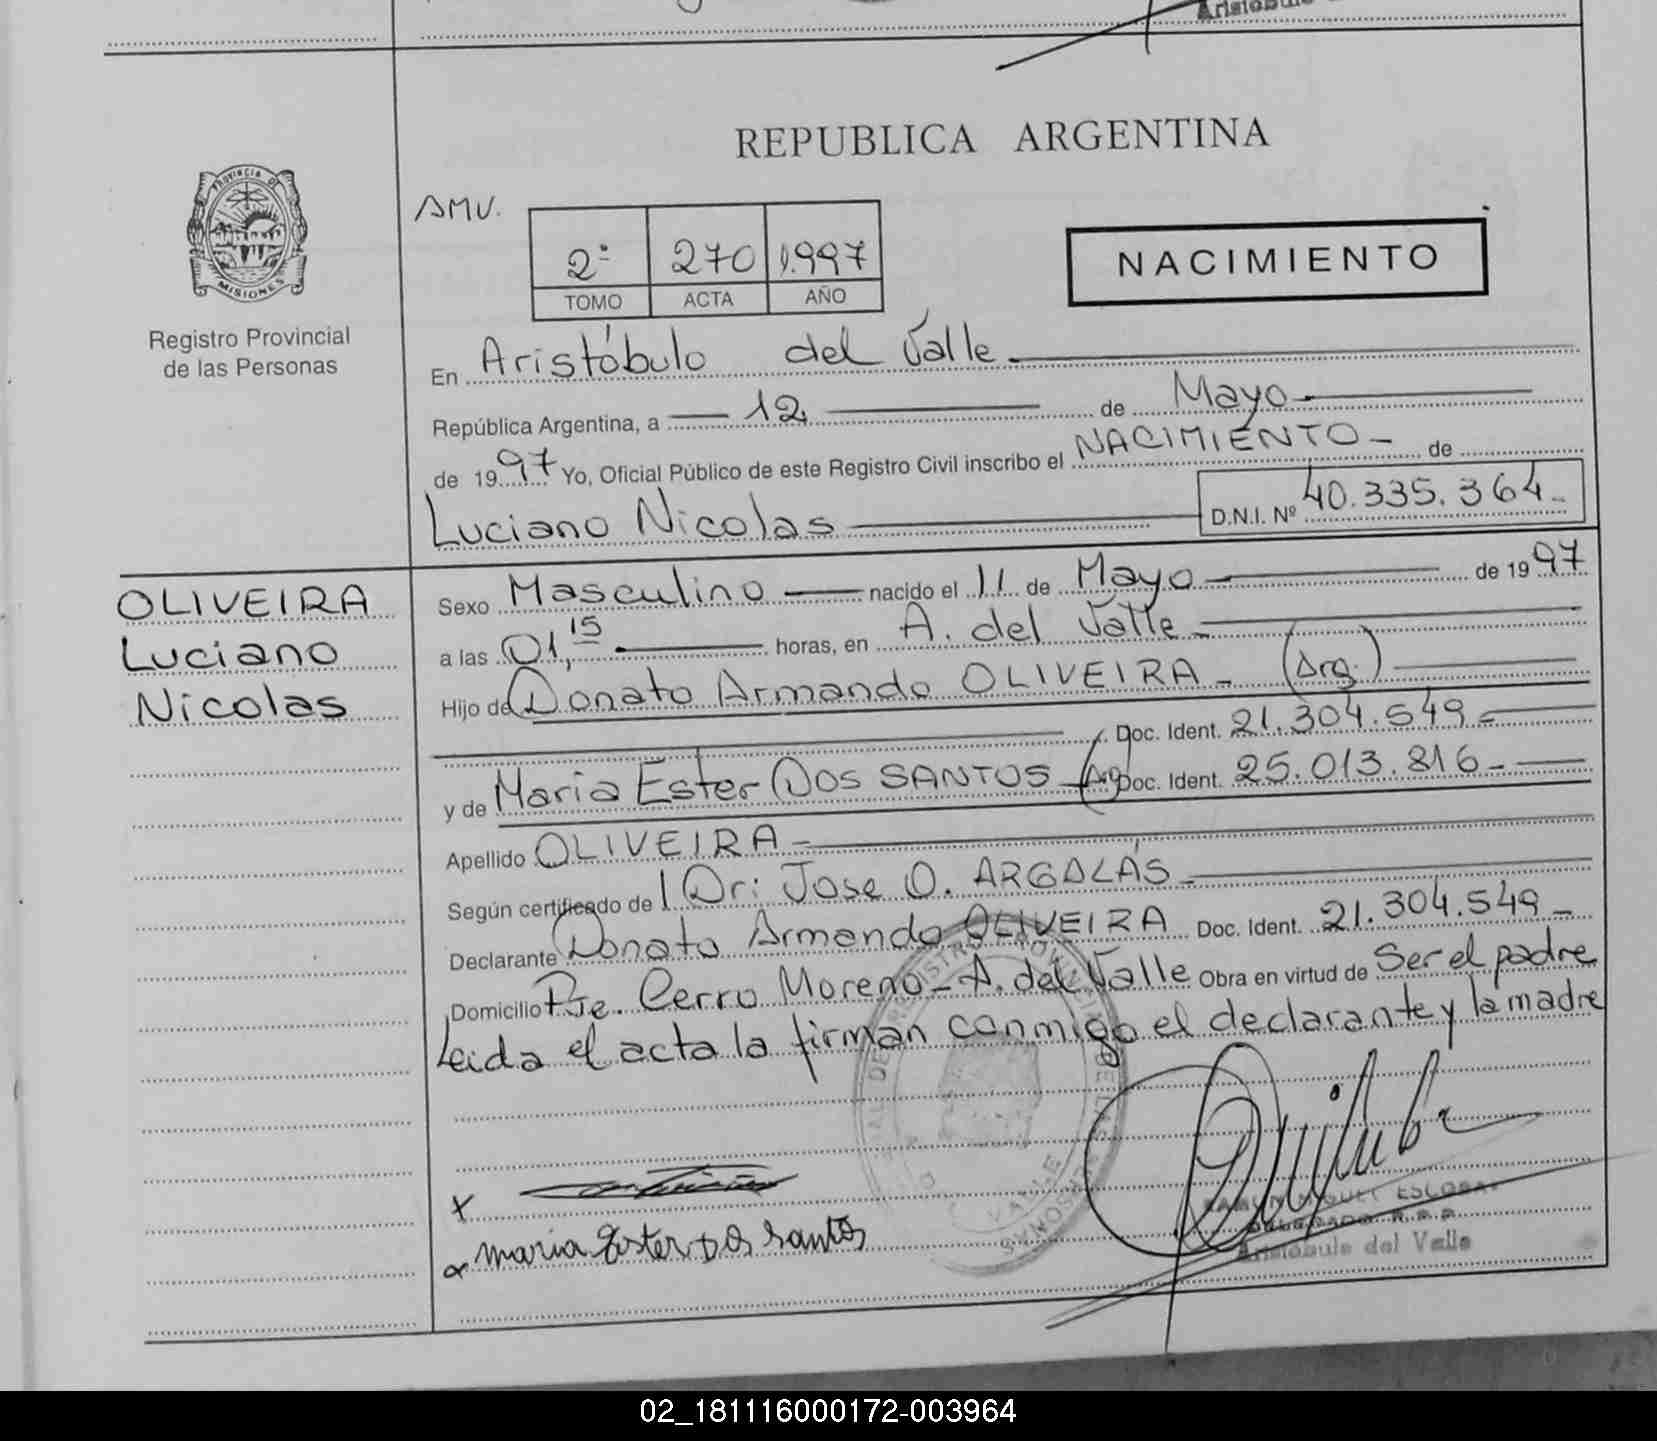 Aristóbulo
REPUBLICA ARGENTINA
Provincia de
MISIONES
Registro Provincial
de las Personas
AMV.
2º 270 1.997
TOMO ACTA AÑO
NACIMIENTO
En Aristóbulo del Valle
República Argentina, a 12 de Mayo
de 1997 Yo, Oficial Público de este Registro Civil inscribo el NACIMIENTO de
Luciano Nicolas D.N.I. Nº 40.335.364
OLIVEIRA
Luciano
Nicolas
Sexo Masculino nacido el 11 de Mayo de 1997
a las 01,15 horas, en A. del Valle
Hijo de Donato Armando OLIVEIRA (Arg.)
Doc. Ident. 21.304.549
y de Maria Ester DOS SANTOS (Arg) Doc. Ident. 25.013.816
Apellido OLIVEIRA
Según certificado de Dr: Jose O.
Declarante Donato Armando OLIVEIRA Doc. Ident. 21.304.549
Domicilio Pje. Cerro Moreno - A. del Valle Obra en virtud de Ser el padre
Leida el acta la firman conmigo el declarante y la madre
x
maria Ester DOS Santos
MIGUEL ESCOBAR
DELEGADO R.P.P.
Aristóbulo del Valle
02_181116000172-003964